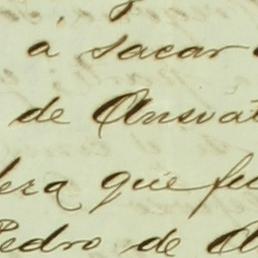 á sacar
de Ansuat
era que fu
Pedro de A